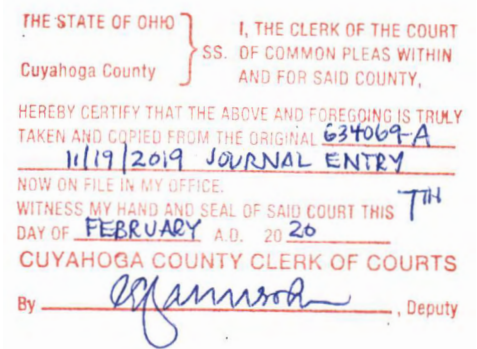 THE STATE OF OHIO
Cuyahoga County
SS.
I, THE CLERK OF THE COURT
OF COMMON PLEAS WITHIN
AND FOR SAID COUNTY,
HEREBY CERTIFY THAT THE ABOVE AND FOREGOING IS TRULY
TAKEN AND COPIED FROM THE ORIGINAL 634069-A
11/19/2019 JOURNAL ENTRY
NOW ON FILE IN MY OFFICE.
WITNESS MY HAND AND SEAL OF SAID COURT THIS 7TH
DAY OF FEBRUARY A.D. 20 20
CUYAHOGA COUNTY CLERK OF COURTS
By , Deputy